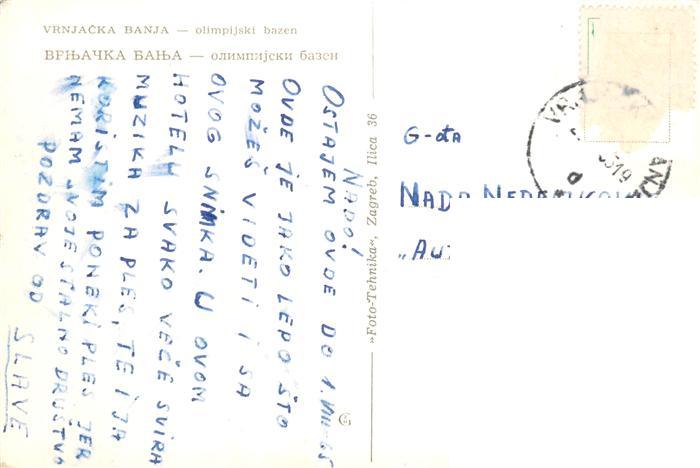 VRNJAČKA BANJA — olimpijski bazen
ВРЊАЧКА БАЊА — олимпијски базен
NADO!
OSTAJEM OVDE DO 1.VIII-65
OVDE JE JAKO LEPO ŠTO
MOŽEŠ VIDETI I SA
OVOG SNIMKA. U OVOM
HOTELU SVAKO VEČE SVIRA
MUZIKA ZA PLES, TE I JA
KORISTIM PONEKI PLES JER
NEMAM SVOJE STALNO DRUŠTVO
POZDRAV OD
SLAVE
»Foto-Tehnika«, Zagreb, Ilica 36
G-đa
NADA